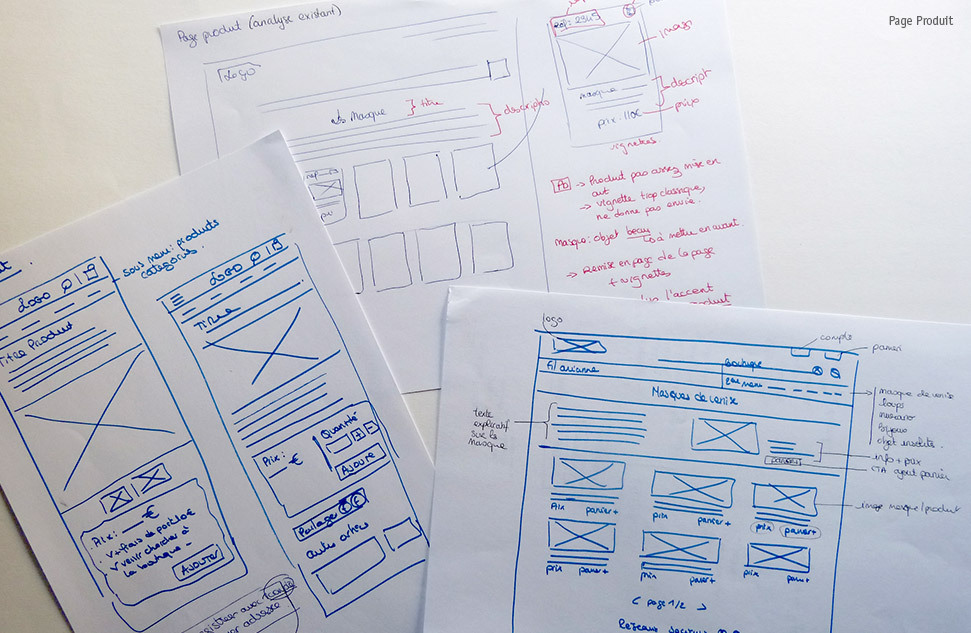 Page Produit
Page produit (analyse existant)
Logo
Masque
titre
descriptio
ref: 2345
image
masque
descript
prix: 110€
prix
vignettes
Pb
-> Produit pas assez mise en
avt
-> vignette trop classique,
ne donne pas envie.
Masque: objet beau
à mettre en avant.
-> Remise en page de la page
+ vignettes
l'accent
sous menu: produits
catégories.
LOGO
Titre Produit
Prix: €
+ frais de port: 10€
venir chercher à
la boutique.
AJOUTER
LOGO
Titre
Prix: €
Quantité
+
-
Ajouter
Partager
autres
adresse
logo
compte
panier
Fil d'arianne
Boutique
Masques de venise
masque de venise
loups
bijoux
objet insolite.
texte
explicatif
sur le
masque
info + prix
panier
CTA ajout panier
image masque/produit
Prix panier+
prix panier+
prix panier+
prix panier+
prix panier+
prix panier+
< page 1/2 >
Réseaux sociaux